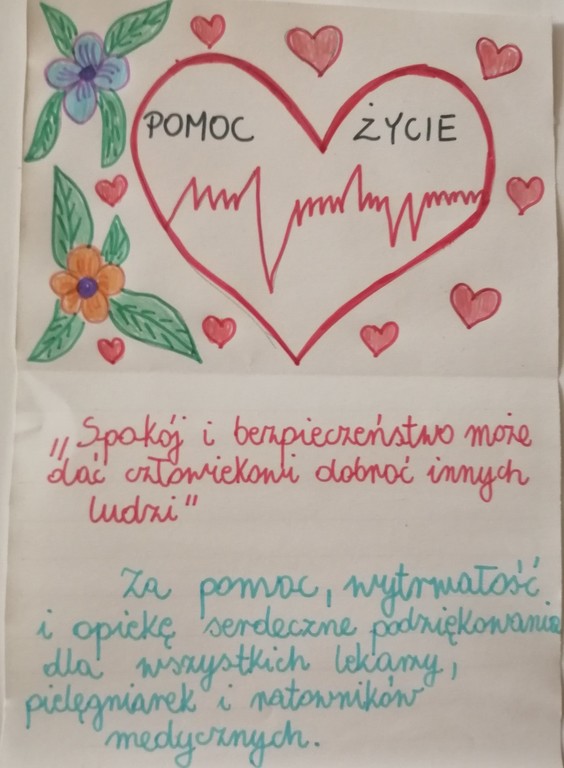 POMOC ŻYCIE
„Spokój i bezpieczeństwo może
dać człowiekowi dobroć innych
ludzi"
Za pomoc, wytrwałość
i opiekę serdeczne podziękowania
dla wszystkich lekarzy,
pielęgniarek i ratowników
medycznych.